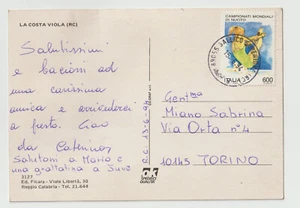 LA COSTA VIOLA (RC)
Salutissimi
e bacioni ad
una carissima
amica e arrivederci
a presto. Ciao
da Caterina
Salutoni a Mario e
una grattatina a
2127
Ed. Ficara - Viale Libertà, 30
Reggio Calabria - Tel. 21.644
R.C. 13-6-94
CAMPIONATI MONDIALI
DI NUOTO
ITALIA
600
Gent.ma
Miano Sabrina
Via Orta n°4
10145 TORINO